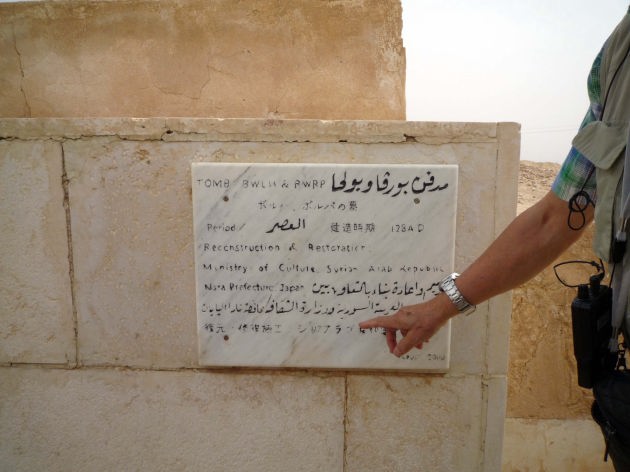 TOMB BWLH & BWRP مدفن بورفا وبولحا
ボルハ、ボルパの墓
Period/ العصر 建造時期 128AD
Reconstruction & Restoration:
Ministry of Culture, Syrian Arab Republic
Nara Prefecture, Japan واعادة بناء بالتعاون بين
العربية السورية ووزارة الثقافة محافظة نارا اليابان
復元・修復施工 シリアアラブ